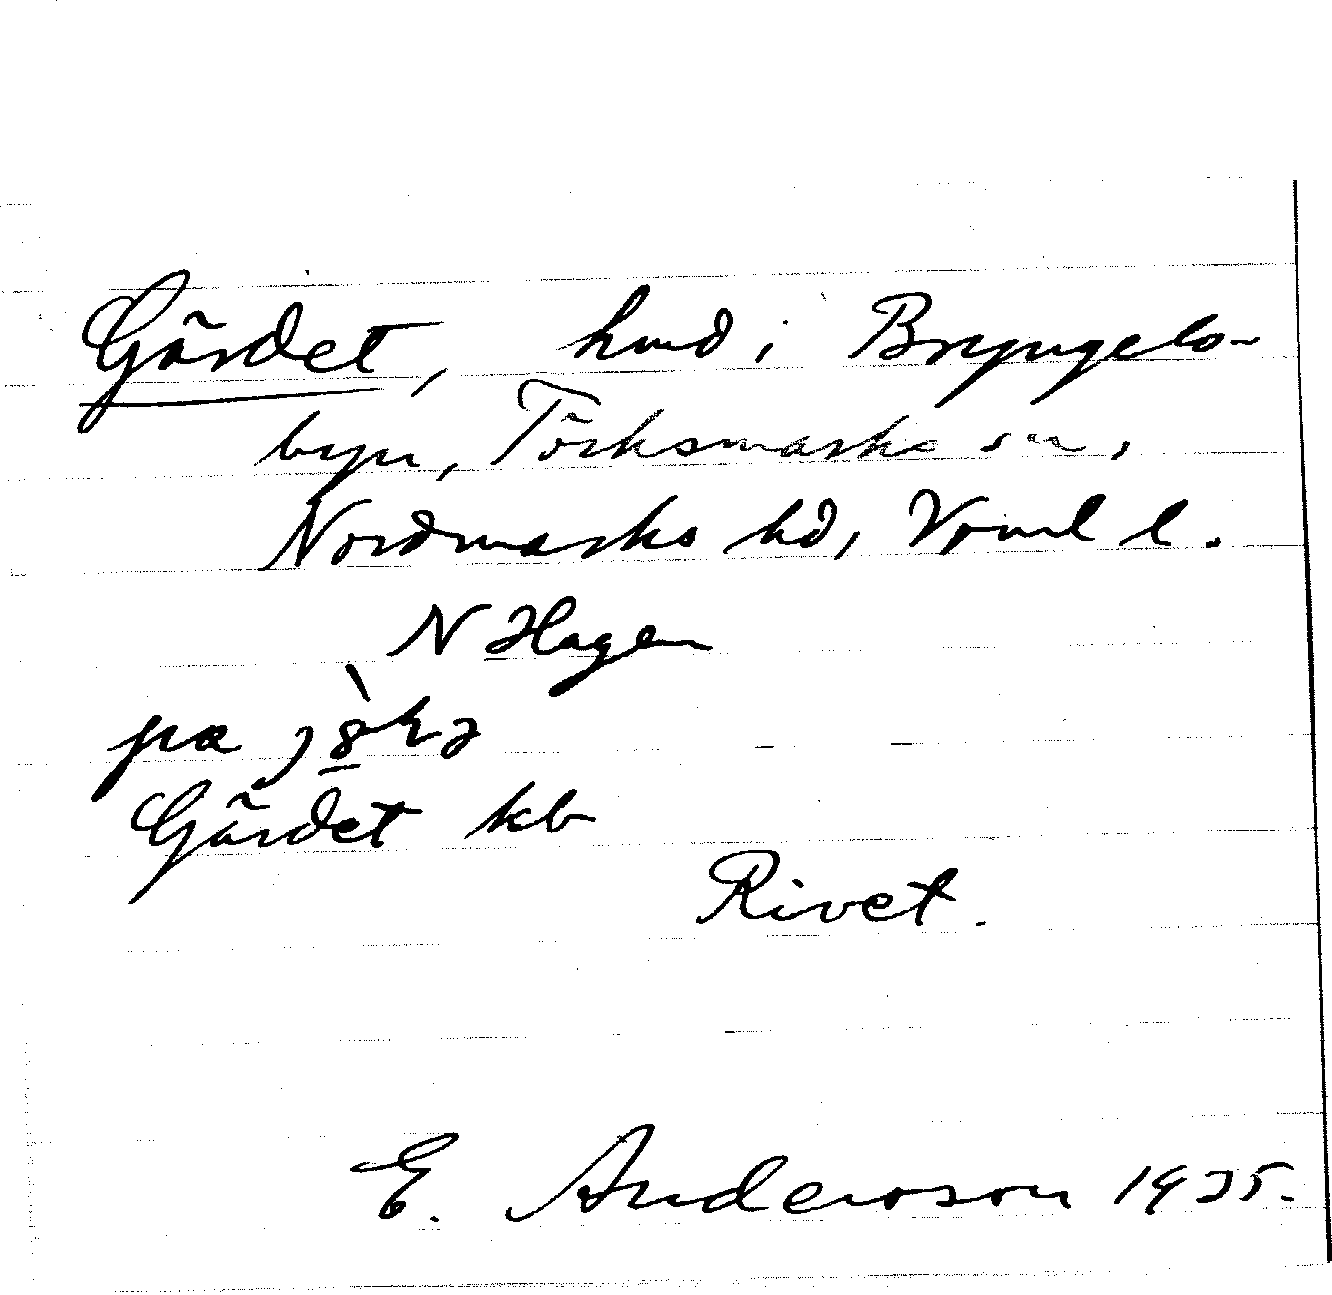 Gärdet, hmd i Bryngels-
byn, Töcksmarks sn,
Nordmarks hd, Värml l.
N Hagen
pa
Gärdet kb
Rivet.
E. Anderson 1925.